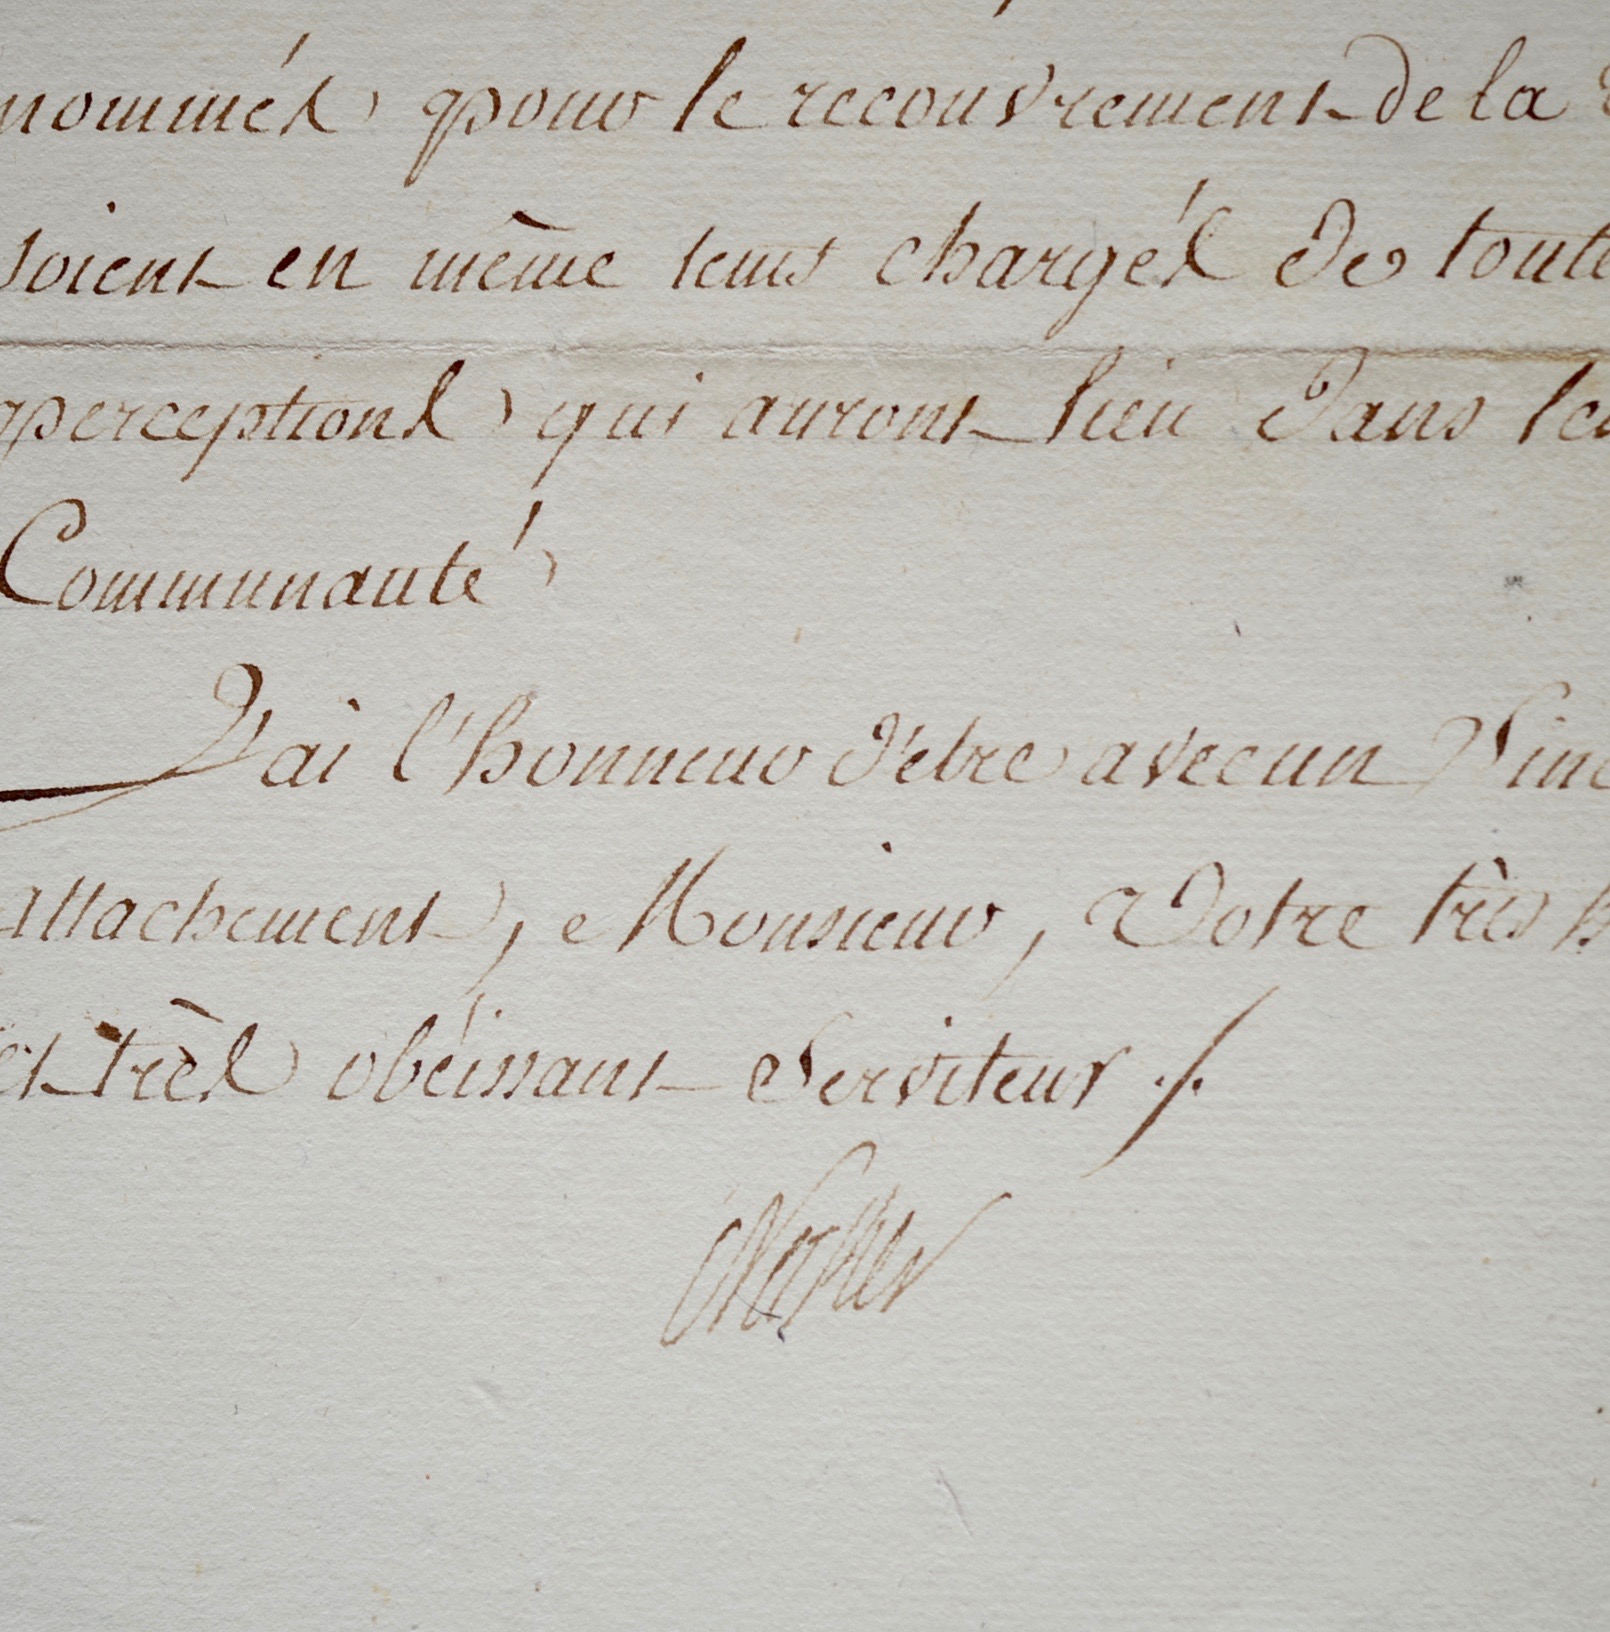 nommés pour le recouvrement de la
soient en même tems chargés de toute
perceptions qui auront lieu dans leu
Communauté
J'ai l'honneur d'être avec un Sinc
attachement, Monsieur, Votre très h
et très obéissant Serviteur ./.
Necker